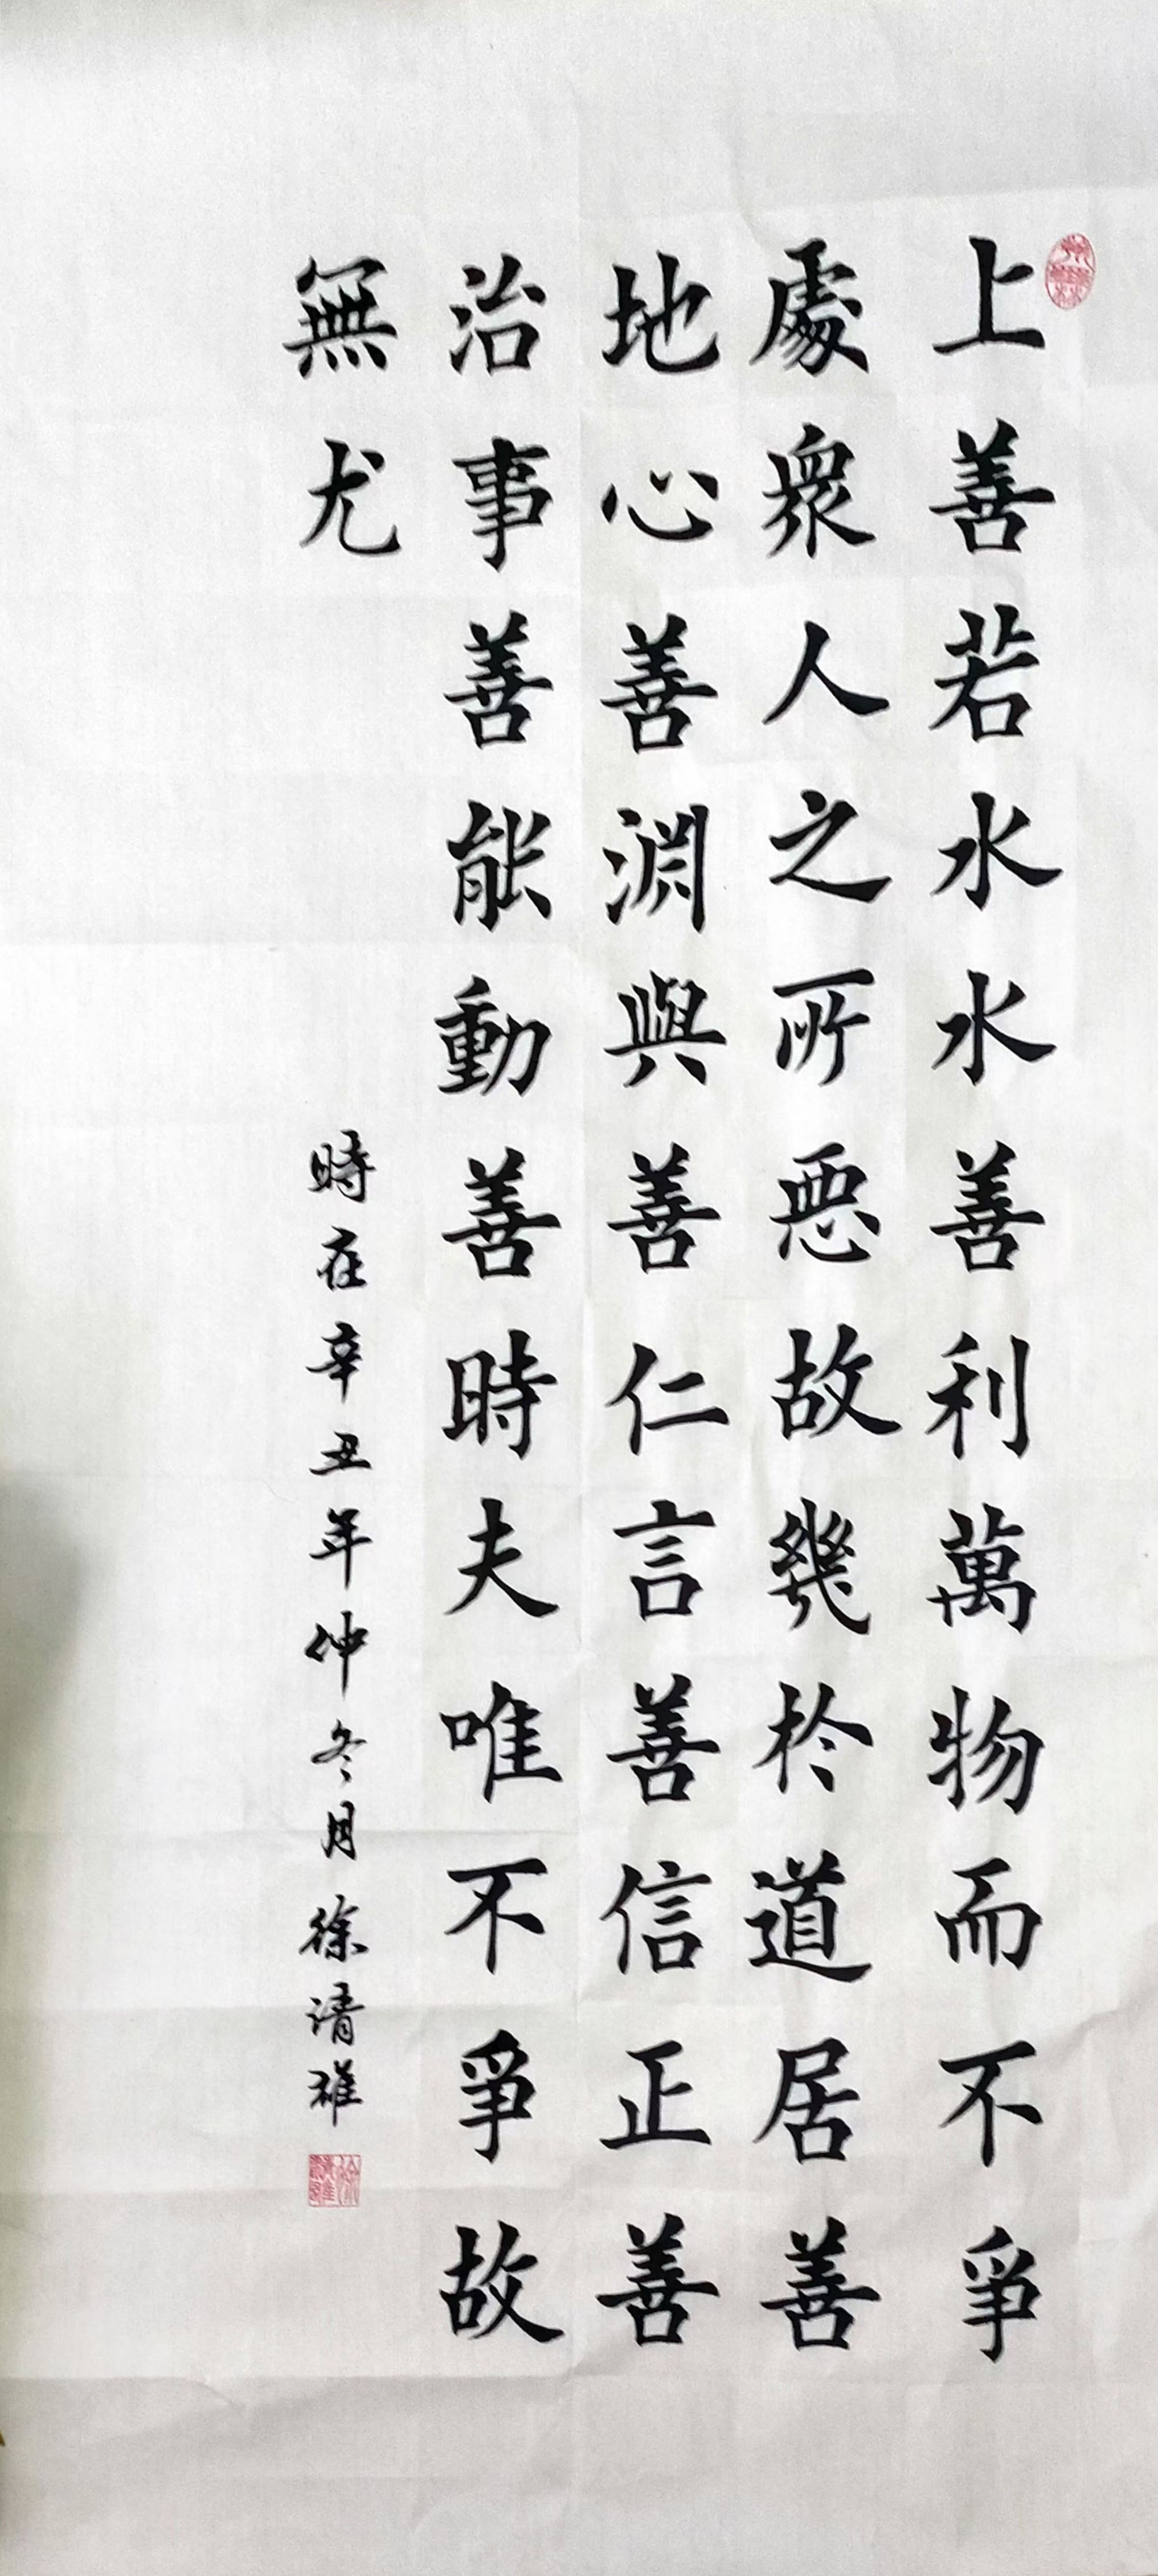 上善若水水善利萬物而不爭
處衆人之所惡故幾於道居善
地心善淵與善仁言善信正善
治事善能動善時夫唯不爭故
無尤
時在辛丑年仲冬月徐清雅